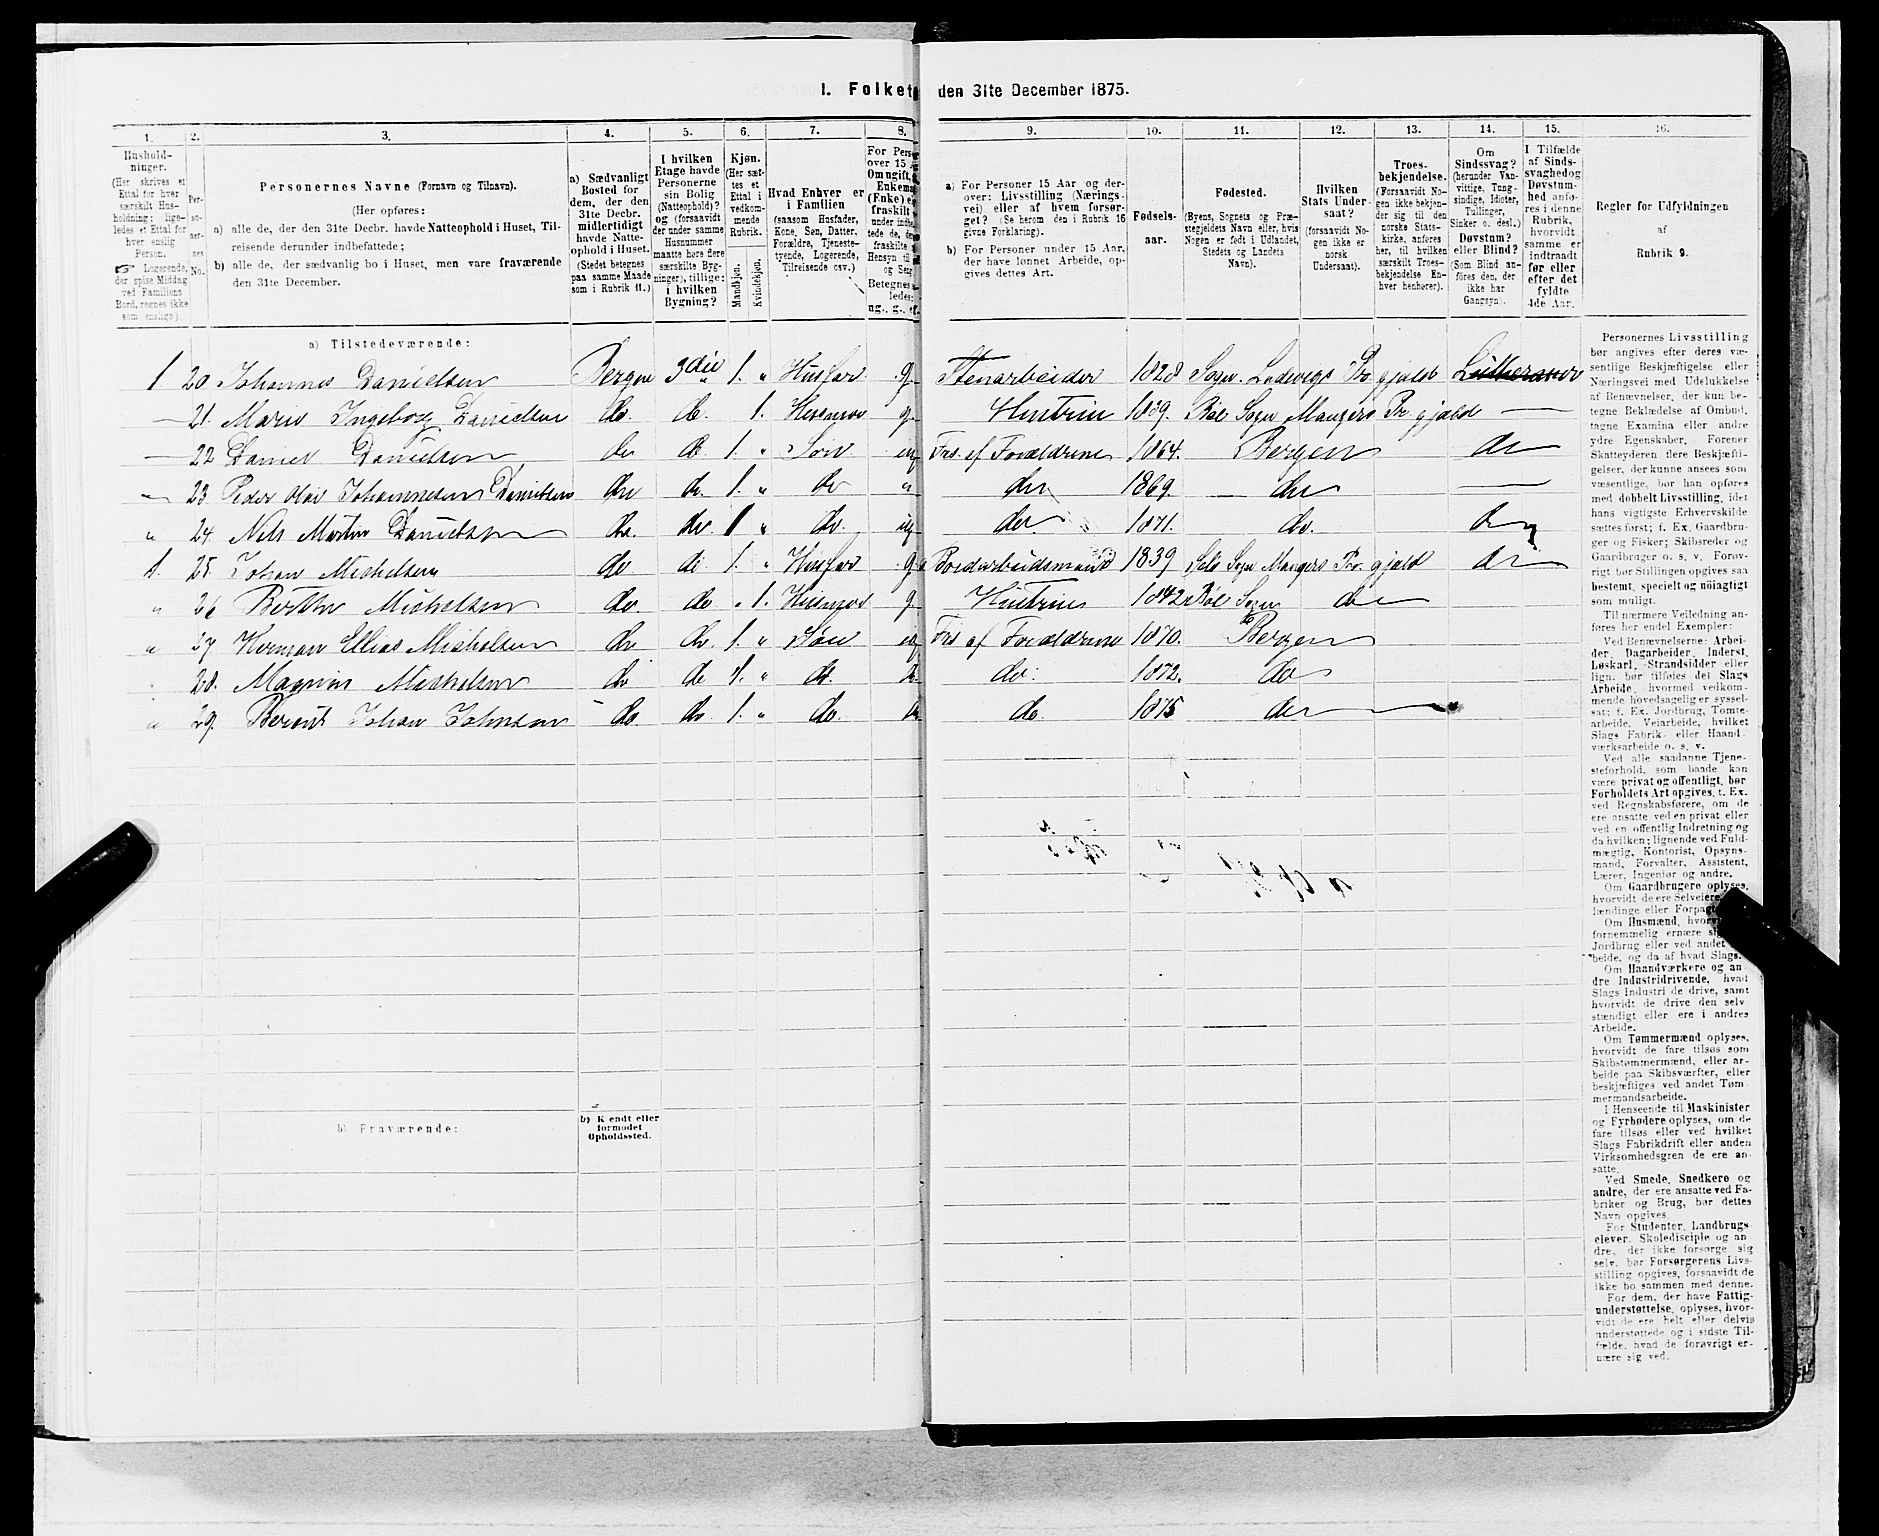 I. Folket
den 31te December 1875.
1. 2. 3. 4. 5. 6. 7. 8. 9. 10. 11. 12. 13. 14. 15. 16.
Hushold-
ninger.
(Her skrives et
Ettal for hver
særskilt Hus-
holdning; lige-
ledes et Ettal for
hver enslig
Person.
☞ Logerende,
der spise Middag
ved Familiens
Bord, regnes ikke
som enslige).
Per-
so-
ner-
nes
No.
Personernes Navne (Fornavn og Tilnavn).
(Her opføres:
a) alle de, der den 31te Decbr. havde Natteophold i Huset, Til-
reisende derunder indbefattede;
b) alle de, der sædvanlig bo i Huset, men vare fraværende
den 31te December.
a) Sædvanligt
Bosted for
dem, der den
31te Decbr.
midlertidigt
havde Natte-
ophold i Huset.
(Stedet betegnes
paa samme Maade
som i Rubrik 11.)
I hvilken
Etage havde
Personerne
sin Bolig
(Natteophold)?
og (forsaavidt
der under samme
Husnummer
maatte høre flere
særskilte Byg-
ninger), tillige:
i hvilken
Bygning?
Kjøn.
(Her sæt-
tes et
Ettal i
vedkom-
mende
Rubrik.
Mandkjøn.
Kvindekjøn.
Hvad Enhver er
i Familien
(saasom Husfader,
Kone, Søn, Datter,
Forældre, Tjeneste-
tyende, Logerende,
Tilreisende osv.)
For Pers
over 15
Om ugift,
Enkema
(Enke) e
fraskilt
under indta
tede de, de
fraskilte
Hensyn til
og Seng
Betegnes
ledes:
ug., g., e
a) For Personer 15 Aar og der-
over: Livsstilling (Nærings-
vei) eller af hvem forsør-
get? (Se herom den i Rubrik 16
givne Forklaring).
b) For Personer under 15 Aar,
der have lønnet Arbeide, op-
gives dettes Art.
Fødsels-
aar.
Fødested.
(Byens, Sognets og Præ-
stegjeldets Navn eller, hvis
Nogen er født i Udlandet,
Stedets og Landets
Navn).
Hvilken
Stats Under-
saat?
(forsaavidt No-
gen ikke er
norsk
Undersaat).
Troes-
bekjendelse.
(Forsaavidt No-
gen ikke bekjen-
der sig til den
norske Stats-
kirke, anføres
her, til hvilken
særskilt Troes-
bekjendelse En-
hver henhører).
Om
Sindssvag?
(herunder Van-
vittige, Tung-
sindige, Idioter,
Tullinger,
Sinker o. desl.)
Døvstum?
eller Blind?
(Som Blind an-
føres den, der
ikke har
Gangsyn).
I Tilfælde
af Sinds-
svaghed og
Døvstum-
hed anfø-
res i denne
Rubrik,
hvorvidt
samme er
indtraadt
før eller
efter det
fyldte
4de Aar.
Regler for Udfyldningen
af
Rubrik 9.
a) Tilstedeværende:
1 20 Johannes Danielsen Bergen 3die 1. " Husfar g Stenarbeider 1828 Sogn Ladwigs Pr. gjeld Lutheraner
21. Marie Ingeborg Danielsen do. do. 1. Husmor g Hustrue 1829. Bøe Sogn Mangers Pr. gjeld
22 Daniel Danielsen do do 1. " Søn ug Frs. af Forældrene 1864. Bergen do
23 Peder Olai Johannesen Danielsen do do. 1. " do " do 1869. do
" 24. Nels Martin Danielsen do. do. 1 " do. ug do. 1871. do. do
1. 25. Johan Michelsen do do 1. " Husfar g Jordarbeidsmand 1839 Sele Sogn Mangers Pr. gjeld do
" 26 Berthe Michelsen do do " 1. Husmor g Hustrue 1842 Bøe Sogn do
" 27 Herman Ellias Michelsen do do 1. " Søn ug Frs af Forældrene 1870. Bergen
28. Magnus Michelsen do do 1. " do. do do. 1872. do
" 29. Berent Johan Johnsen do. do. 1. " do. do do. 1875 do
b) Fraværende:
b) Kjendt eller
formodet
Opholdssted.
Personernes Livsstilling
bør angives efter deres væ-
sentlige Beskjæftigelse eller
Næringsvei med Udelukkelse
af Benævnelser, der kun be-
tegne Beklædelse af Ombud,
tagne Examina eller andre
ydre Egenskaber. Forener
Skatteyderen flere Beskjæfti-
gelser, der kunne ansees som
væsentlige, bør han opføres
med dobbelt Livsstilling, idet
hans vigtigste Erhvervskilde
sættes først; f. Ex. Gaardbru-
ger og Fisker; Skibsreder og
Gaardbruger o. s. v. Forøv-
rigt bør Stillingen opgives saa
bestemt, specielt og nøiagtigt
som muligt.
Til nærmere Veiledning an-
føres her endel Exempler:
Ved Benævnelserne: Arbei-
der, Dagarbeider, Inderst,
Løskarl, Strandsidder eller
lign. bør tilføies det Slags
Arbeide, hvormed vedkom-
mende hovedsagelig er syssel-
sat; f. Ex. Jordbrug, Tomte-
arbeide, Veiarbeide, hvilket
Slags Fabrik- eller Haand-
værksarbeide o. s. v.
Ved alle saadanne Tjene-
steforhold, som baade kan
være privat og offentligt, bør
Forholdets Art opgives, t. Ex.
ved Regnskabsførere, om de
ere ansatte ved en privat eller
ved en offentlig Indretning og
da hvilken; lignende ved Fuld-
mægtig, Kontorist, Opsyns-
mand, Forvalter, Assistent,
Lærer, Ingeniør og andre.
Om Gaardbrugere oplyses,
hvorvidt de ere Selveiere,
lændinge eller Forpag
Om Husmænd, hvor
fornemmelig ernære si
Jordbrug eller ved andet
beide, og da af hvad Slags.
Om Haandværkere og an-
dre Industridrivende, hvad
Slags Industri de drive, samt
hvorvidt de drive den selv-
stændigt eller ere i andres
Arbeide.
Om Tømmermænd oplyses,
hvorvidt de fare tilsøs som
Skibstømmermænd, eller ar-
beide paa Skibsværfter, eller
beskjæftiges ved andet Tøm-
mermandsarbeide.
I Henseende til Maskinister
og Fyrbødere oplyses, om de
fare tilsøs eller ved hvilket
Slags Fabrikdrift eller anden
Virksomhedsgren de ere an-
satte.
Ved Smede, Snedkere og
andre, der ere ansatte ved Fa-
briker og Brug, bør dettes
Navn opgives
For Studenter, Landbrugs-
elever, Skoledisciple og an-
dre, der ikke forsørge sig
selv, bør Forsørgerens Livs-
stilling opgives, forsaavidt de
ikke bo sammen med denne.
For dem, der have Fattig-
understøttelse, oplyses, hvor-
vidt de ere helt eller delvis
understøttede og i sidste Til-
fælde, hvad de forøvrigt er-
nære sig ved.